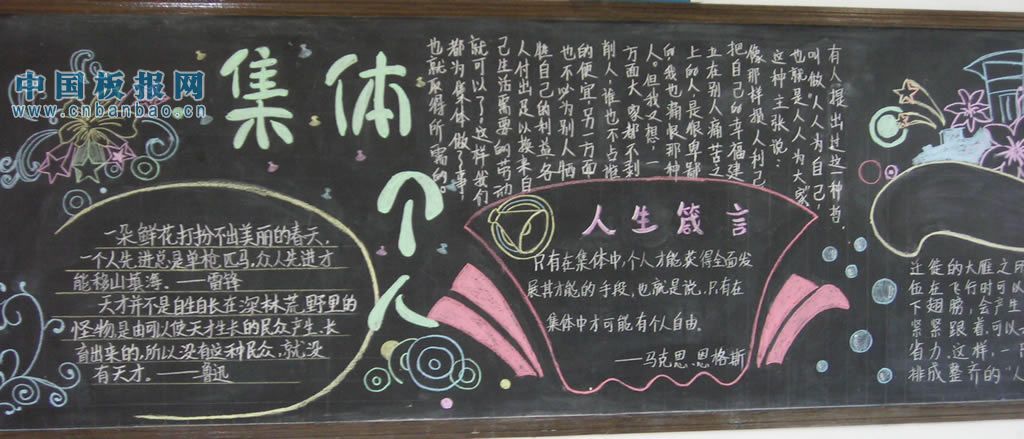 中国板报网
www.cnbanbao.cn
集体
个人
一朵鲜花打扮不出美丽的春天,
一个人先进总是单枪匹马,众人先进才
能移山填海。——雷锋
天才并不是自生自长在深林荒野里的
怪物,是由可以使天才生长的民众产生、长
育出来的,所以没有这种民众,就没
有天才。——鲁迅
有人提出过这一种哲,
叫做“人人为自己,
也就是人人为大家”
这种主张说:
像那样损人利己
把自己的幸福建
立在别人痛苦之
上的人是很卑鄙
的我也痛恨那种
人。但我又想:一
方面大家都不剥
削人,谁也不占谁
的便宜;另一方面
也不必为别人牺
牲自己的利益,各
人付出足以换来自
己生活需要的劳动
就可以了。这样我们
都为集体做了事
也就取得所需的。
人生箴言
只有在集体中,个人才能获得全面发
展其才能的手段,也就是说,只有在
集体中才可能有个人自由。
——马克思 恩格斯
迁徙的大雁之所
位在飞行时可以
下翅膀,会产生
紧紧跟着,可以
省力。这样,一
排成整齐的“人